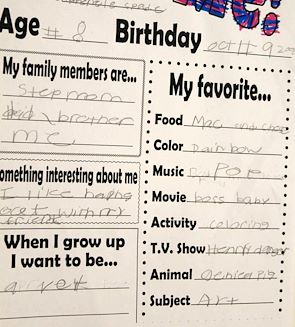 Me!
Age # 8 Birthday oct 11-9
My family members are...
Stepmom
dad \ brother
me
Something interesting about me
I like
with my
When I grow up
I want to be...
a vet
My favorite...
Food Mac and
Color rainbow
Music Pop
Movie boss baby
Activity coloring
T.V. Show Henry danger
Animal Genieapig
Subject Art